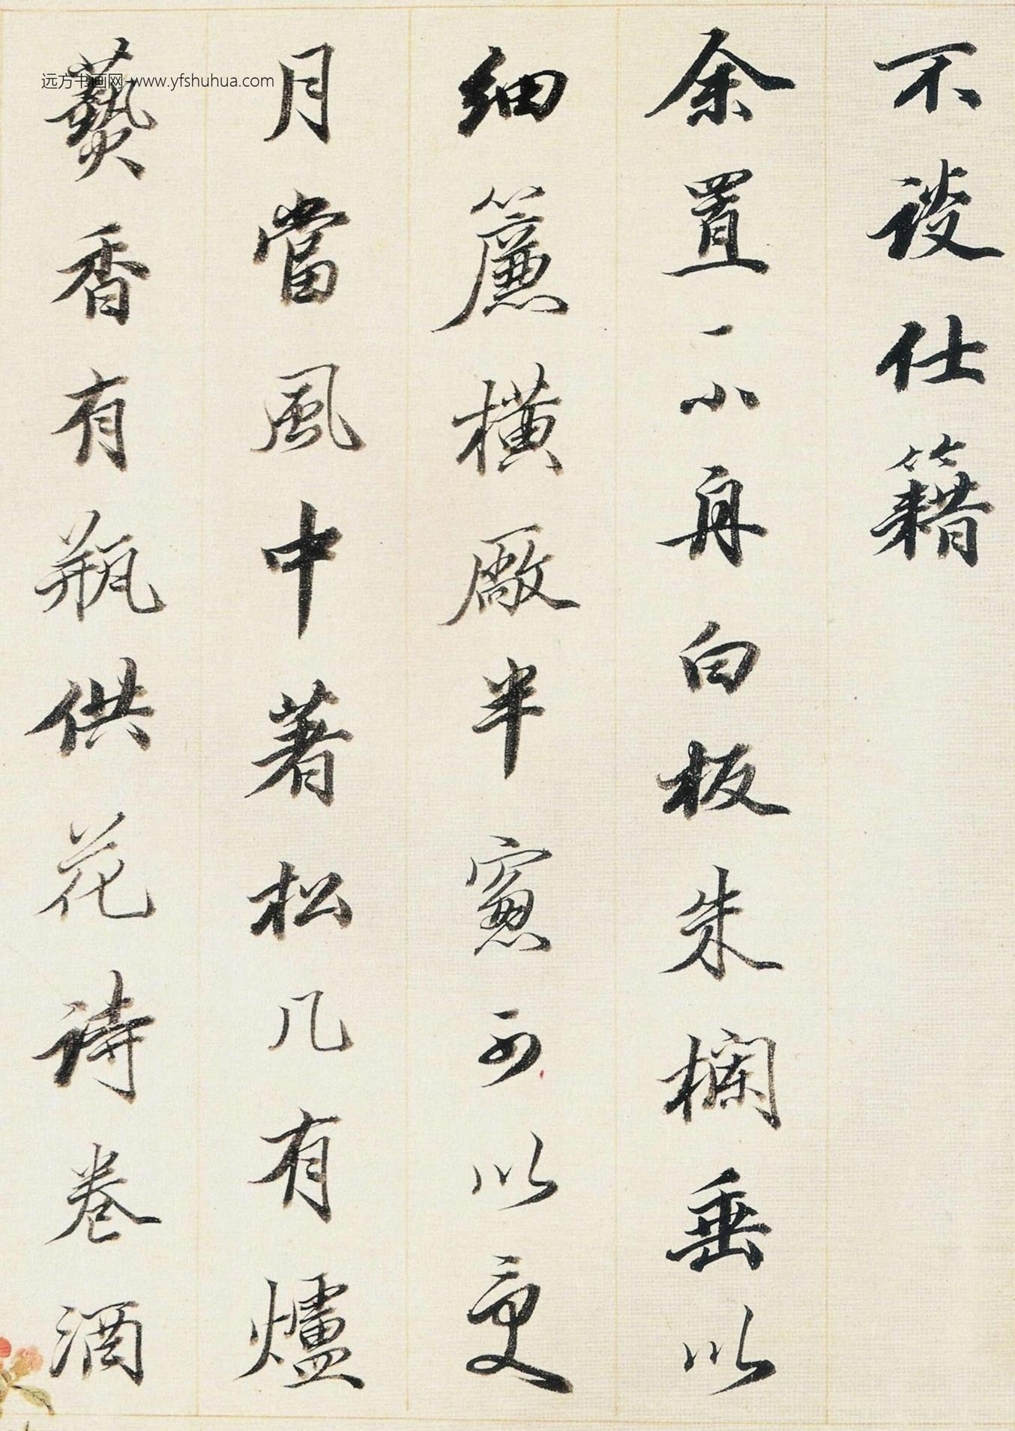 不談仕籍
余置一小舟白板朱欄垂以
細簾橫厰半窻可以受
月當風中著松几有爐
爇香有瓶供花詩卷酒
远方书画网-www.yfshuhua.com